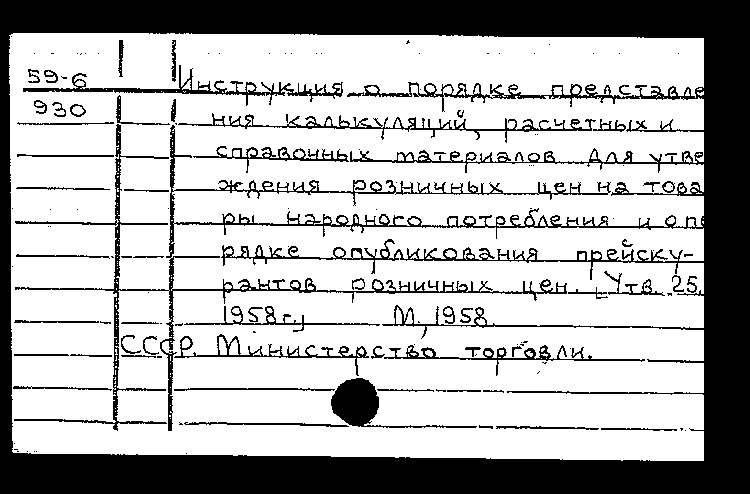 59-6 Инструкция о порядке представле
930 ния калькуляций, расчетных и
справочных материалов для утве
ждения розничных цен на това
ры народного потребления и о по
рядке опубликования прейску-
рантов розничных цен. [Утв. 25.
1958г.] М., 1958.
СССР. Министерство торговли.